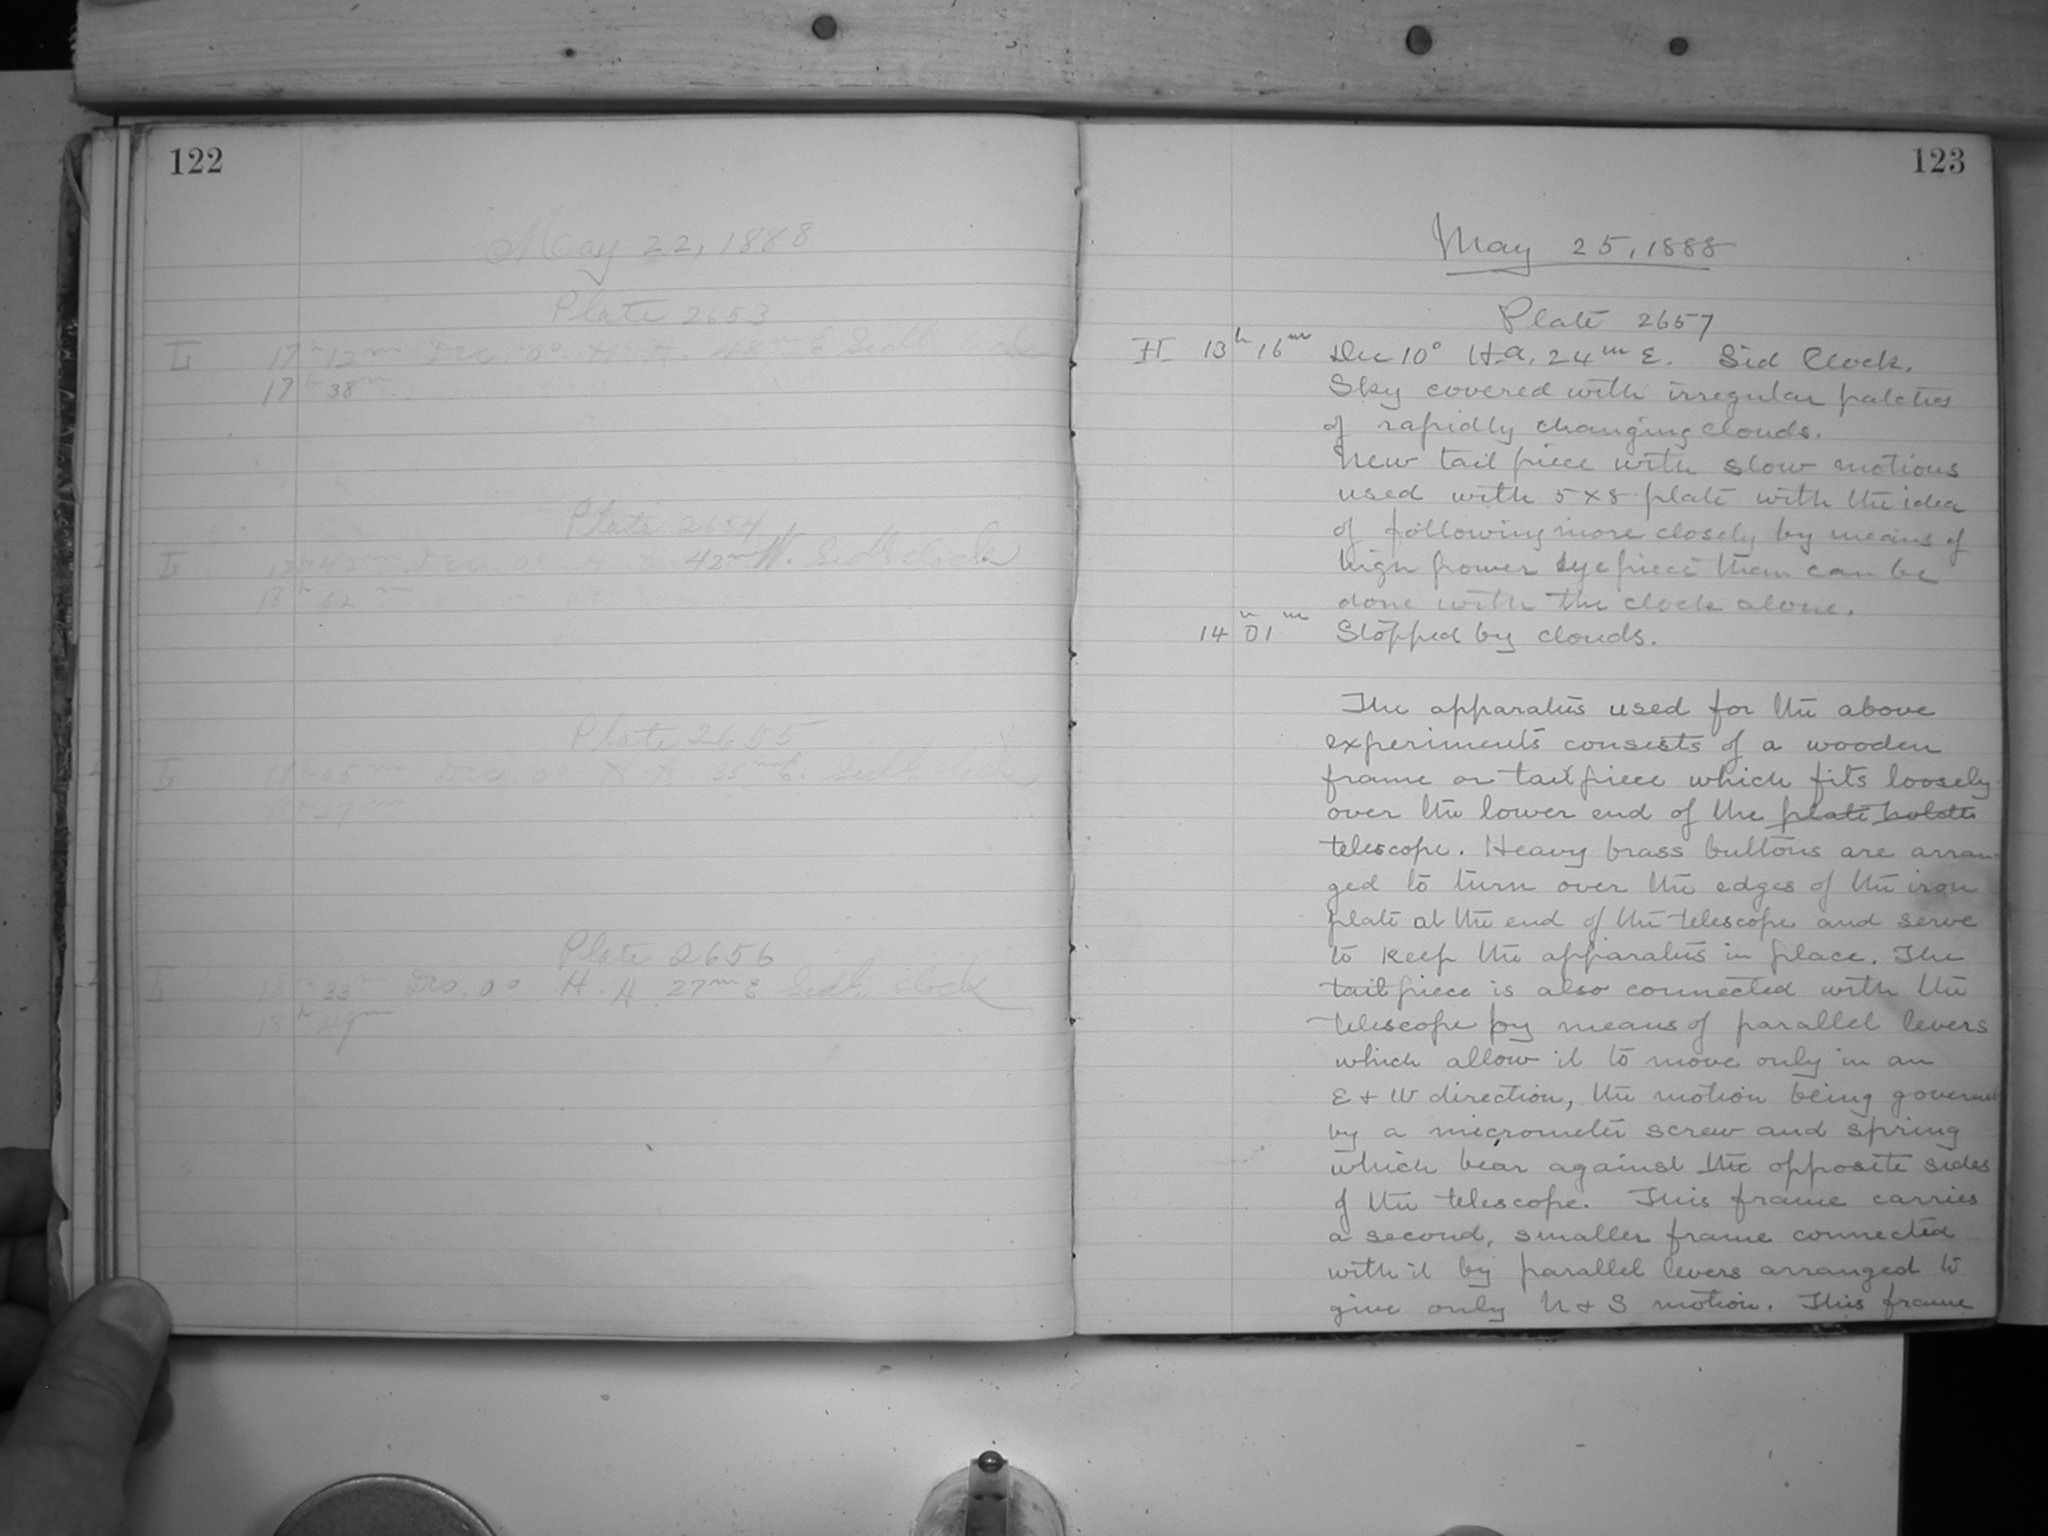 122
May 22, 1888
Plate 2653
17h 12m Dec. 0° H. A. 48m E Sidl. clock
17h 38m
Plate 2654
Dec. 0° H. A. 42m W. Sidl. clock
Plate 2655
Dec. 0° H. A. 35m E. Sidl. clock
Plate 2656
33m Dec. 0° H. A. 27m E Sidl. clock
18h 49m
123
May 25, 1888
Plate 2657
II 13h 16m Dec 10° H.a. 24m E. Sid Clock.
Sky covered with irregular patches
of rapidly changing clouds.
New tail piece with slow motions
used with 5x8 plate with the idea
of following more closely by means of
high power eye piece than can be
done with the clock alone.
14h 01m Stopped by clouds.
The apparatus used for the above
experiments consists of a wooden
frame or tail piece which fits loosely
over the lower end of the plate holder
telescope. Heavy brass buttons are arran-
ged to turn over the edges of the iron
plate at the end of the telescope and serve
to keep the apparatus in place. The
tail piece is also connected with the
telescope by means of parallel levers
which allow it to move only in an
E + W direction, the motion being governed
by a micrometer screw and spring
which bear against the opposite sides
of the telescope. This frame carries
a second, smaller frame connected
with it by parallel levers arranged to
give only N + S motion. This frame